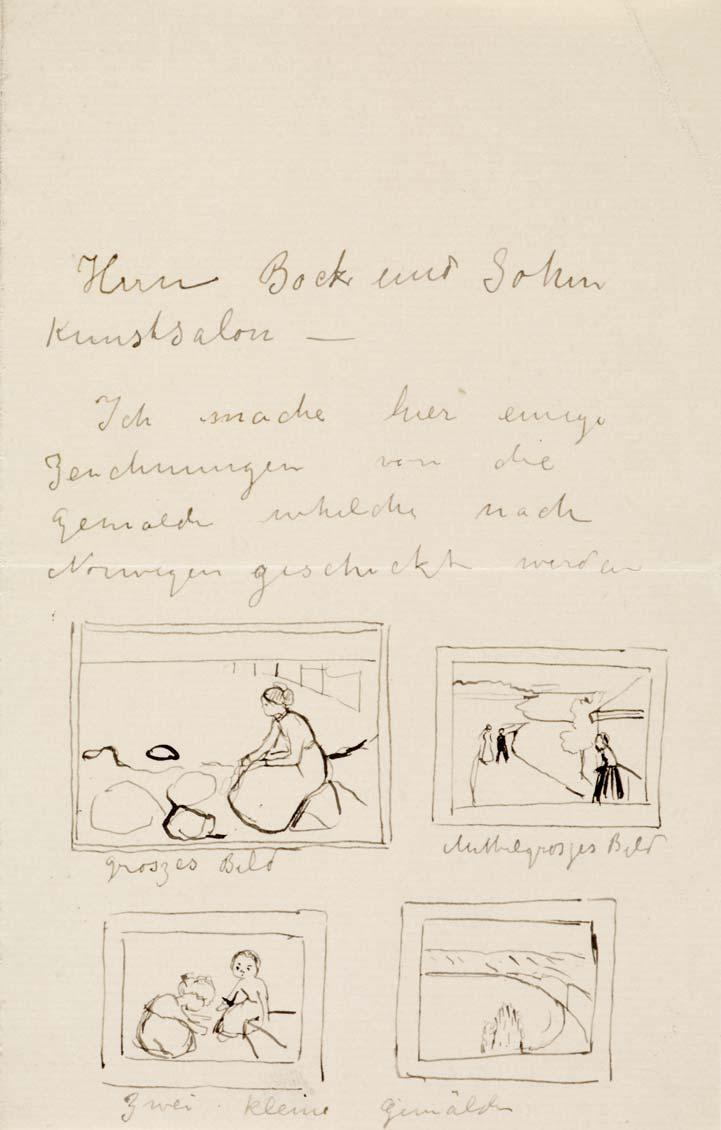 Herrn Bock und Sohn
Kunstsalon —
Ich mache hier einige
Zeichnungen von die
Gemälde whelche nach
Norwegen geschickt werden
groszes Bild
Mittelgroszes Bild
Zwei kleine Gemälde